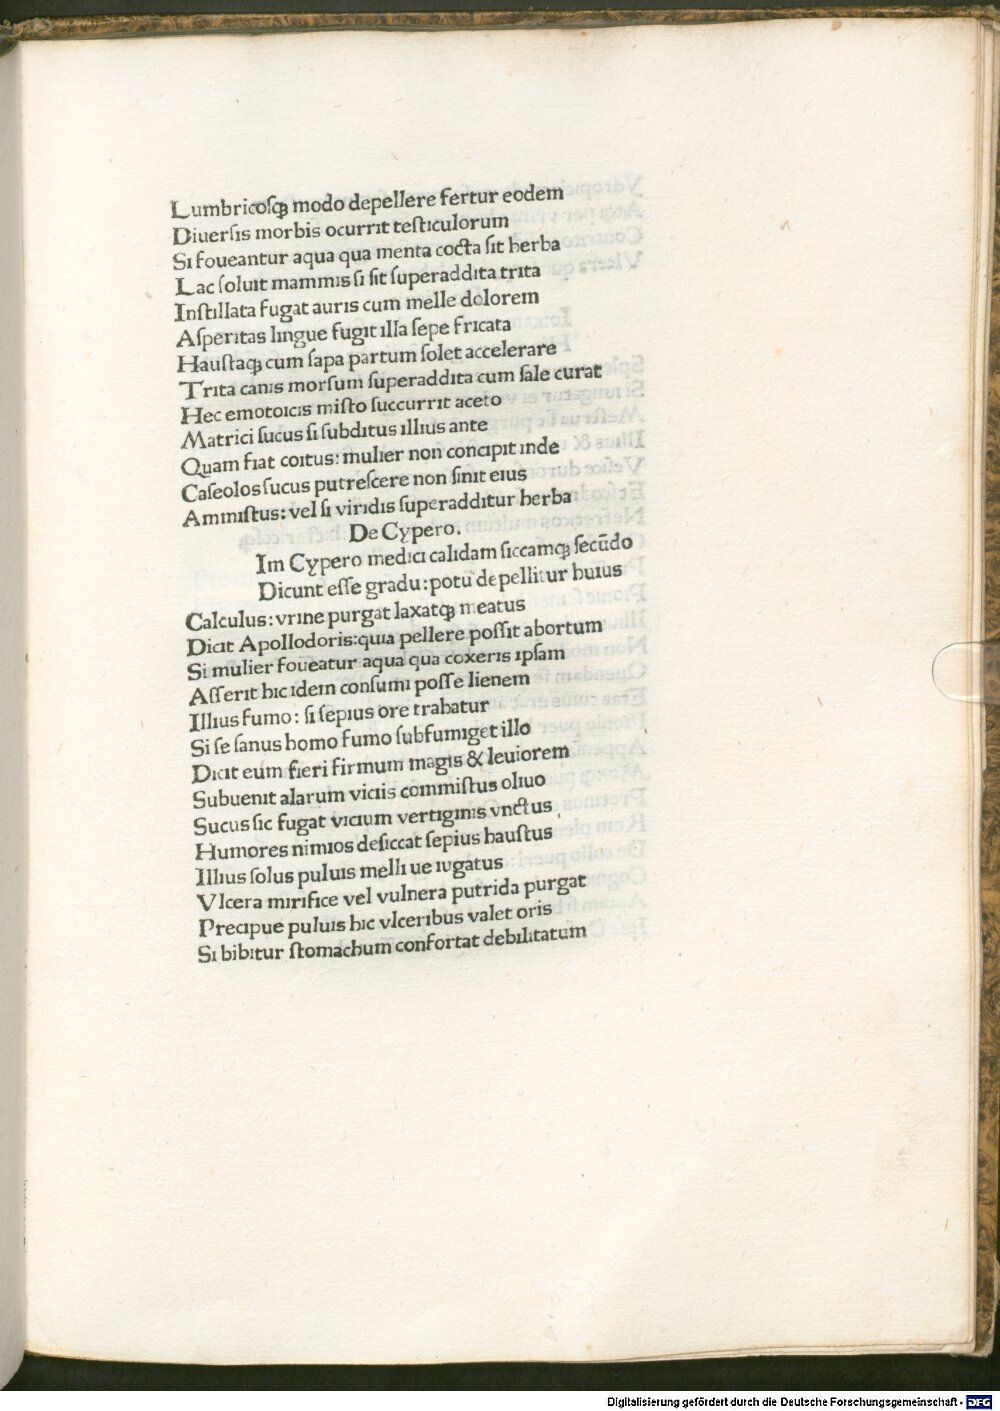 Lumbricoſqꝫ modo depellere fertur eodem
Diuerſis morbis ocurrit teſticulorum
Si foueantur aqua qua menta cocta ſit herba
Lac ſoluit mammis ſi ſit ſuperaddita trita
Inſtillata fugat auris cum melle dolorem
Aſperitas lingue fugit illa ſepe fricata
Hauſtaqꝫ cum ſapa partum ſolet accelerare
Trita canis morſum ſuperaddita cum ſale curat
Hec emotoicis miſto ſuccurrit aceto
Matrici ſucus ſi ſubditus illius ante
Quam fiat coitus: mulier non concipit inde
Caſeolos ſucus putreſcere non ſinit eius
Ammiſtus: vel ſi viridis ſuperadditur herba
De Cypero.
Im Cypero medici calidam ſiccamqꝫ ſecūdo
Dicunt eſſe gradu: potu depellitur huius
Calculus: vrine purgat laxatqꝫ meatus
Dicit Apollodoris: quia pellere poſſit abortum
Si mulier foueatur aqua qua coxeris ipſam
Aſſerit hic idem conſumi poſſe lienem
Illius fumo: ſi ſepius ore trahatur
Si ſe ſanus homo fumo ſubfumiget illo
Dicit eum fieri firmum magis & leuiorem
Subuenit alarum viciis commiſtus oliuo
Sucus ſic fugat vicium vertiginis vnctus
Humores nimios deſiccat ſepius hauſtus
Illius ſolus puluis melli ue iugatus
Vlcera mirifice vel vulnera putrida purgat
Precipue puluis hic vlceribus valet oris
Si bibitur ſtomachum confortat debilitatum
Digitalisierung gefördert durch die Deutsche Forschungsgemeinschaft - DFG